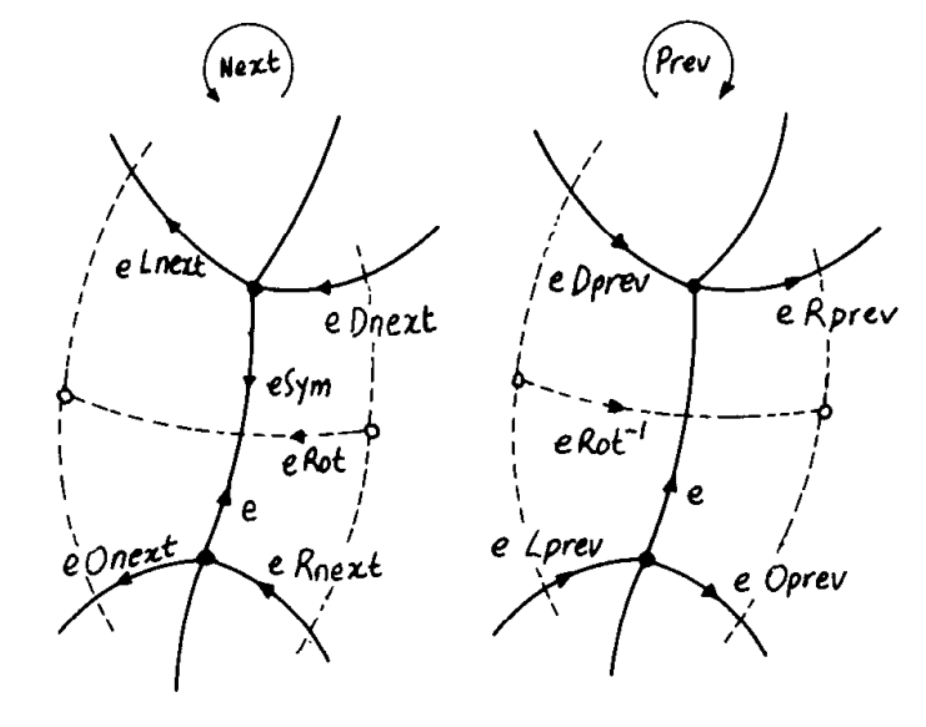 Next
Prev
e Lnext
e Dnext
eSym
e Rot
e
e Onext
e Rnext
e Dprev
e Rprev
e Rot⁻¹
e
e Lprev
e Oprev